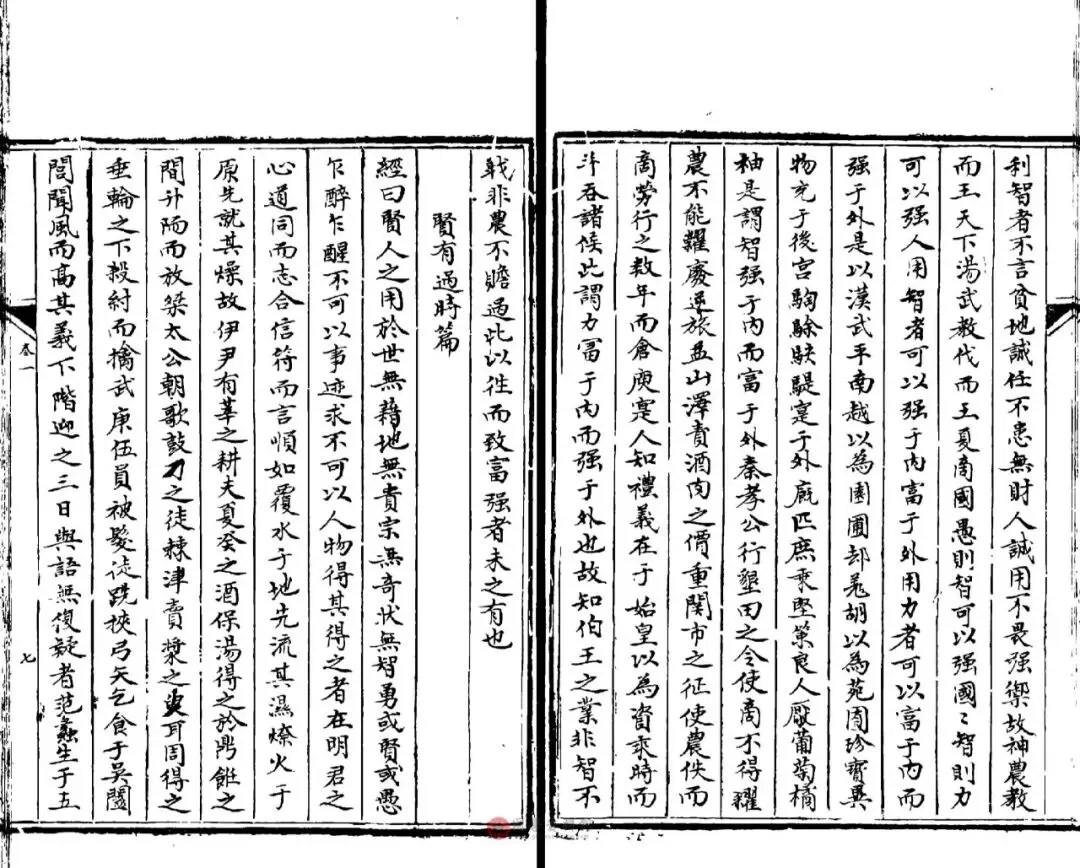 利智者不言貧地誠任不患無財人誠用不畏强禦故神農教
而王天下湯武教伐而王夏商國愚則智可以强國〻智則力
可以强人用智者可以强于内富于外用力者可以富于内而
强于外是以漢武平南越以為園圃却羌胡以為苑囿珍寳異
物充于後宫騊駼駃騠寔于外廐匹庶乗堅策良人厭葡菊橘
柚是謂智强于内而富于外秦孝公行墾田之令使商不得糴
農不能糶廢逆旅益山澤責酒肉之價重関市之征使農佚而
商勞行之数年而倉庾寔人知禮義在于始皇以為資乗時而
斗吞諸候此謂力冨于内而强于外也故知伯王之業非智不
戰非農不贍過此以徃而致富强者未之有也
賢有過時篇
經曰賢人之用於世無藉地無貴宗無奇狀無智勇或賢或愚
乍醉乍醒不可以事迹求不可以人物得其得之者在明君之
心道同而志合信符而言順如覆水于地先流其濕燎火于
原先就其燥故伊尹有莘之耕夫夏癸之酒保湯得之於鼎飪之
間升陑而放桀太公朝歌鼓刀之徒棘津賣漿之叟耳周得之
垂輪之下殺紂而擒武庚伍員被髮徒跣挾弓矢乞食于吴闔
閭聞風而髙其義下階迎之三日與語無復疑者范蠡生于五
卷一
七